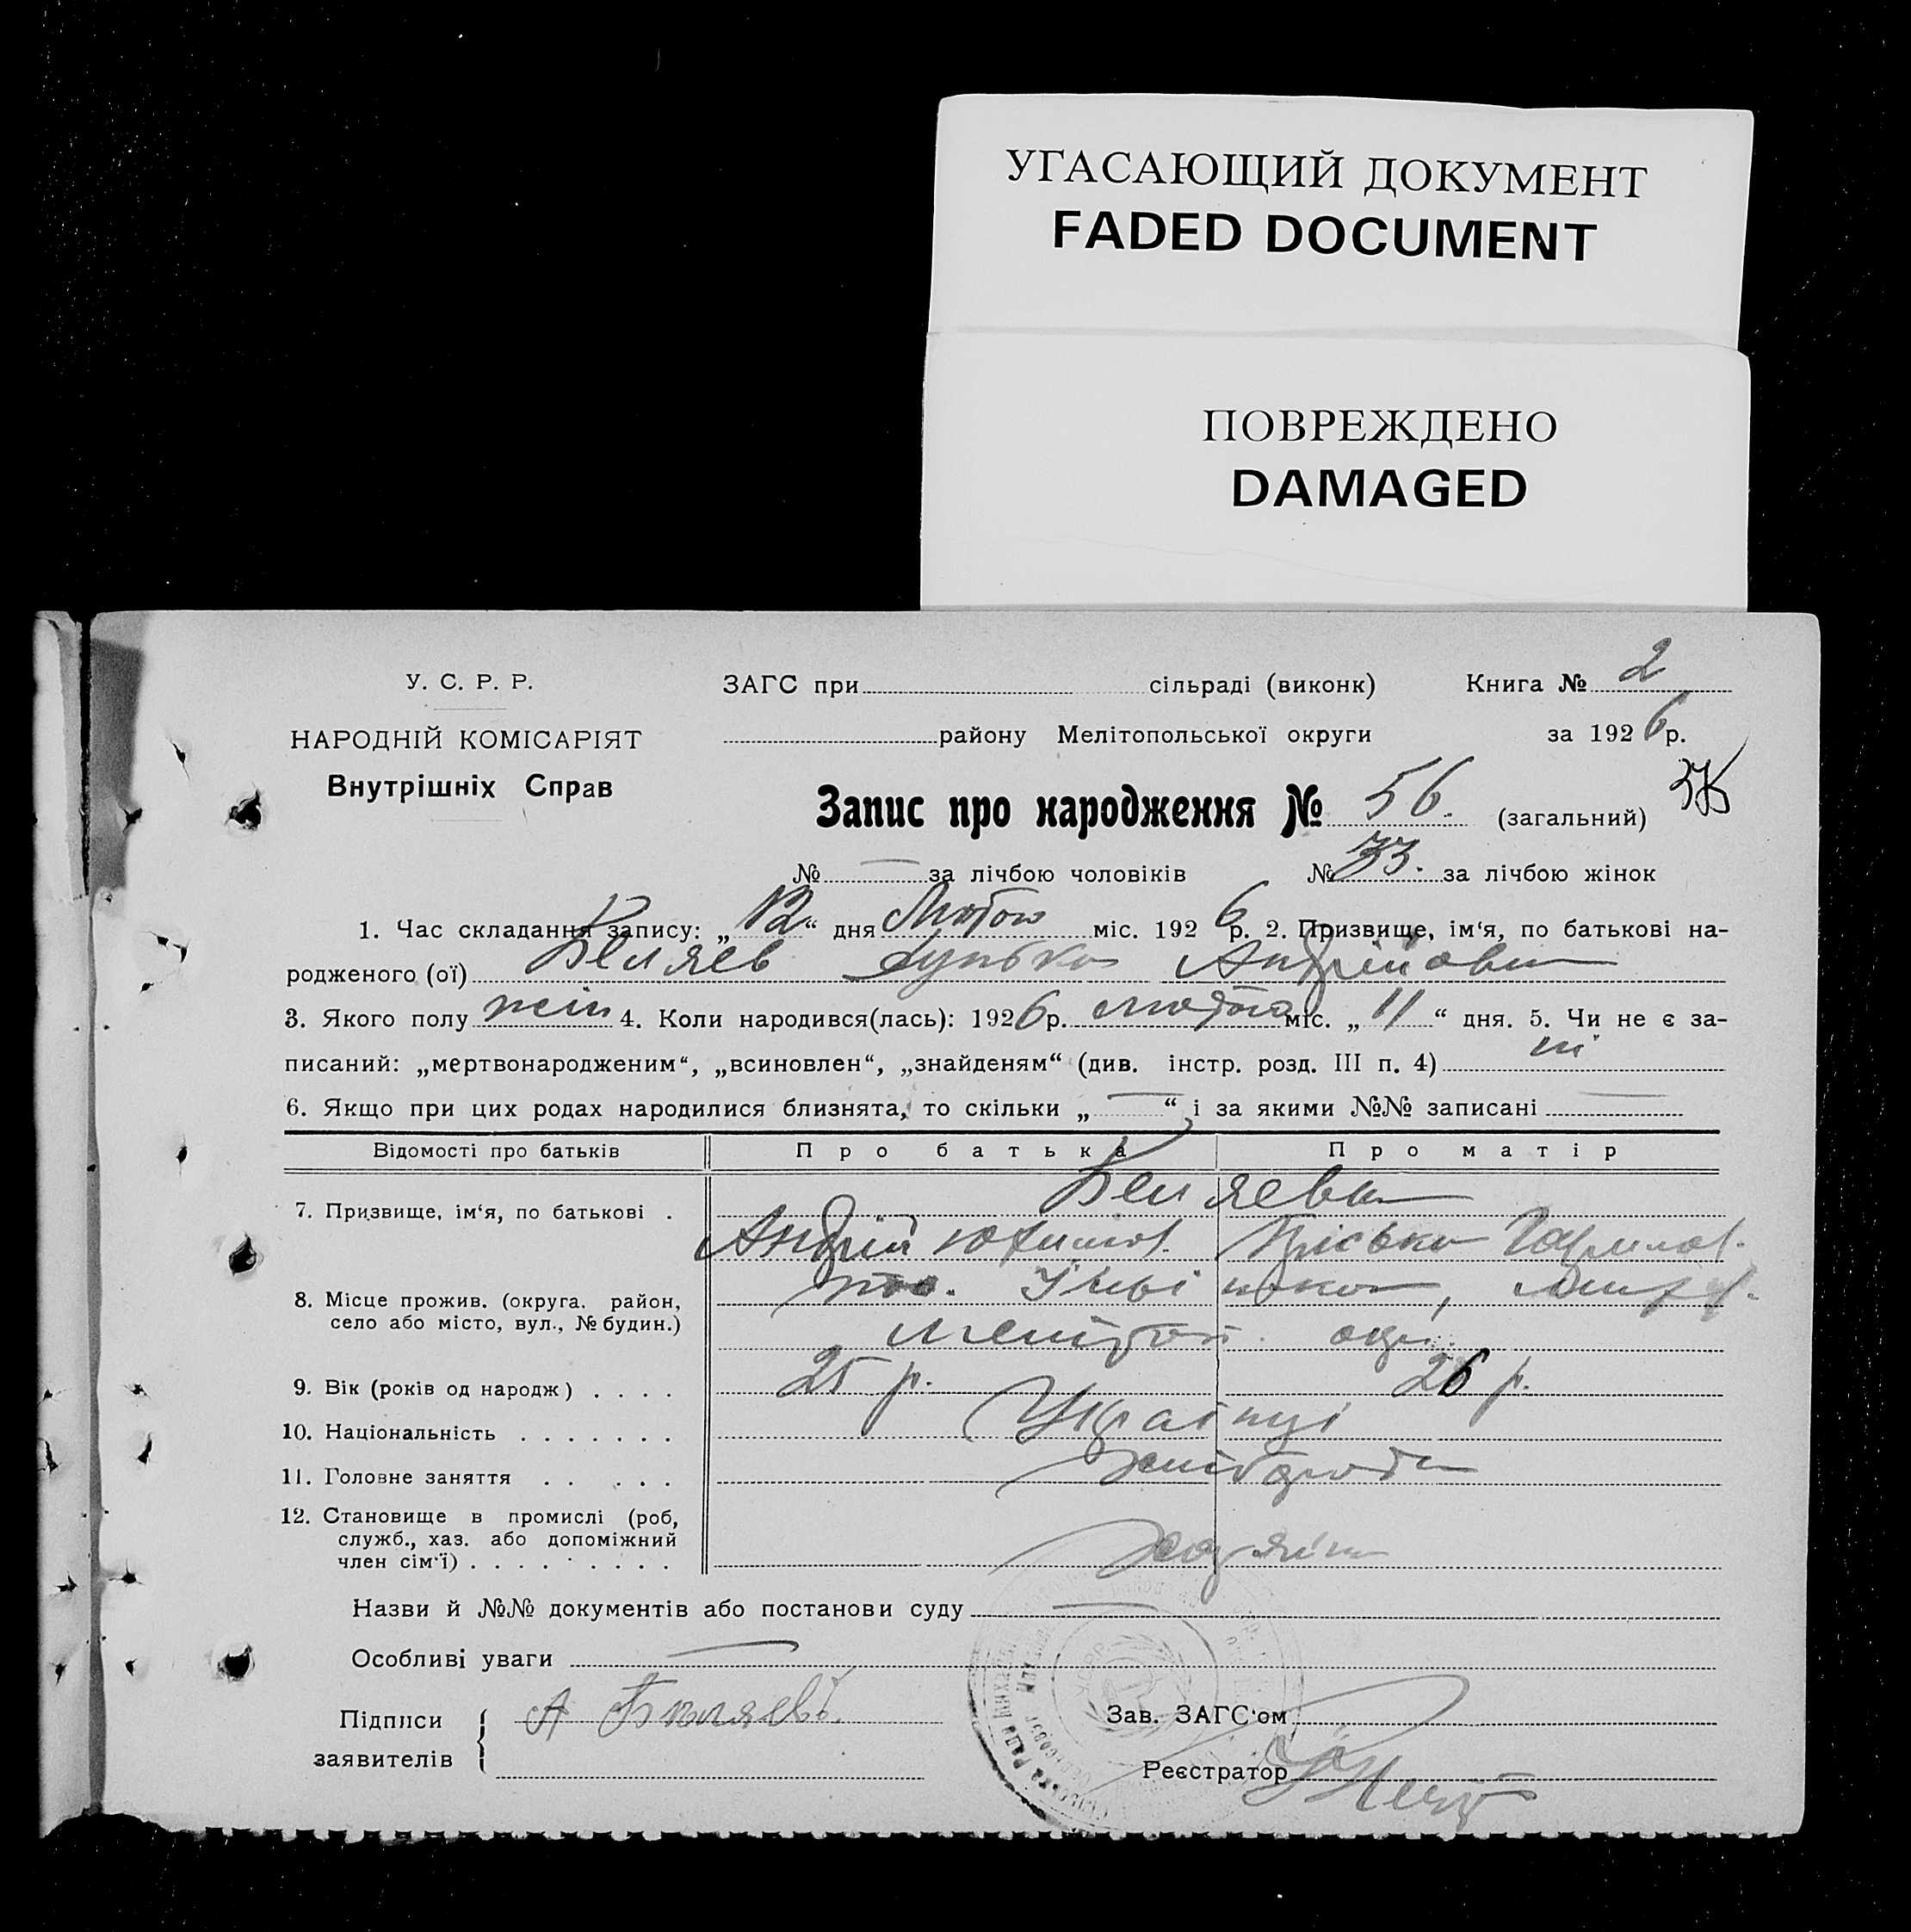 УГАСАЮЩИЙ ДОКУМЕНТ
FADED DOCUMENT
ПОВРЕЖДЕНО
DAMAGED
У. С. Р. Р.
НАРОДНІЙ КОМІСАРІЯТ
Внутрішніх Справ
ЗАГС при сільраді (виконк) Книга № 2
району Мелітопольської округи за 1926 р.
Запис про народження № 56. (загальний)
№ — за лічбою чоловіків № 33. за лічбою жінок
1. Час складання запису: „12“ дня Лютого міс. 1926 р. 2. Призвище, ім‘я, по батькові на-
родженого (ої) Беляев Андрійовна
3. Якого полу жін 4. Коли народився(лась): 1926 р. лютого міс. „11“ дня. 5. Чи не є за-
писаний: „мертвонародженим“, „всиновлен“, „знайденям“ (див. інстр. розд. III п. 4) ні
6. Якщо при цих родах народилися близнята, то скільки „—“ і за якими №№ записані —
Відомості про батьків Про батька Про матір
7. Призвище, ім‘я, по батькові . Беляева
Андрій Юхимов. Пріська Гаврилов.
8. Місце прожив. (округа, район,
село або місто, вул., № будин.)
Мелітоп. окр.
9. Вік (років од народж) . . . . 25 р. 26 р.
10. Національність . . . . . . . Українці
11. Головне заняття . . . . . . хлібороби
12. Становище в промислі (роб,
служб., хаз. або допоміжний
член сім‘ї) . . . . . . . . . хазяїни
Назви й №№ документів або постанови суду —
Особливі уваги —
Підписи
заявителів
А Беляевъ.
Зав. ЗАГС‘ом
Реєстратор